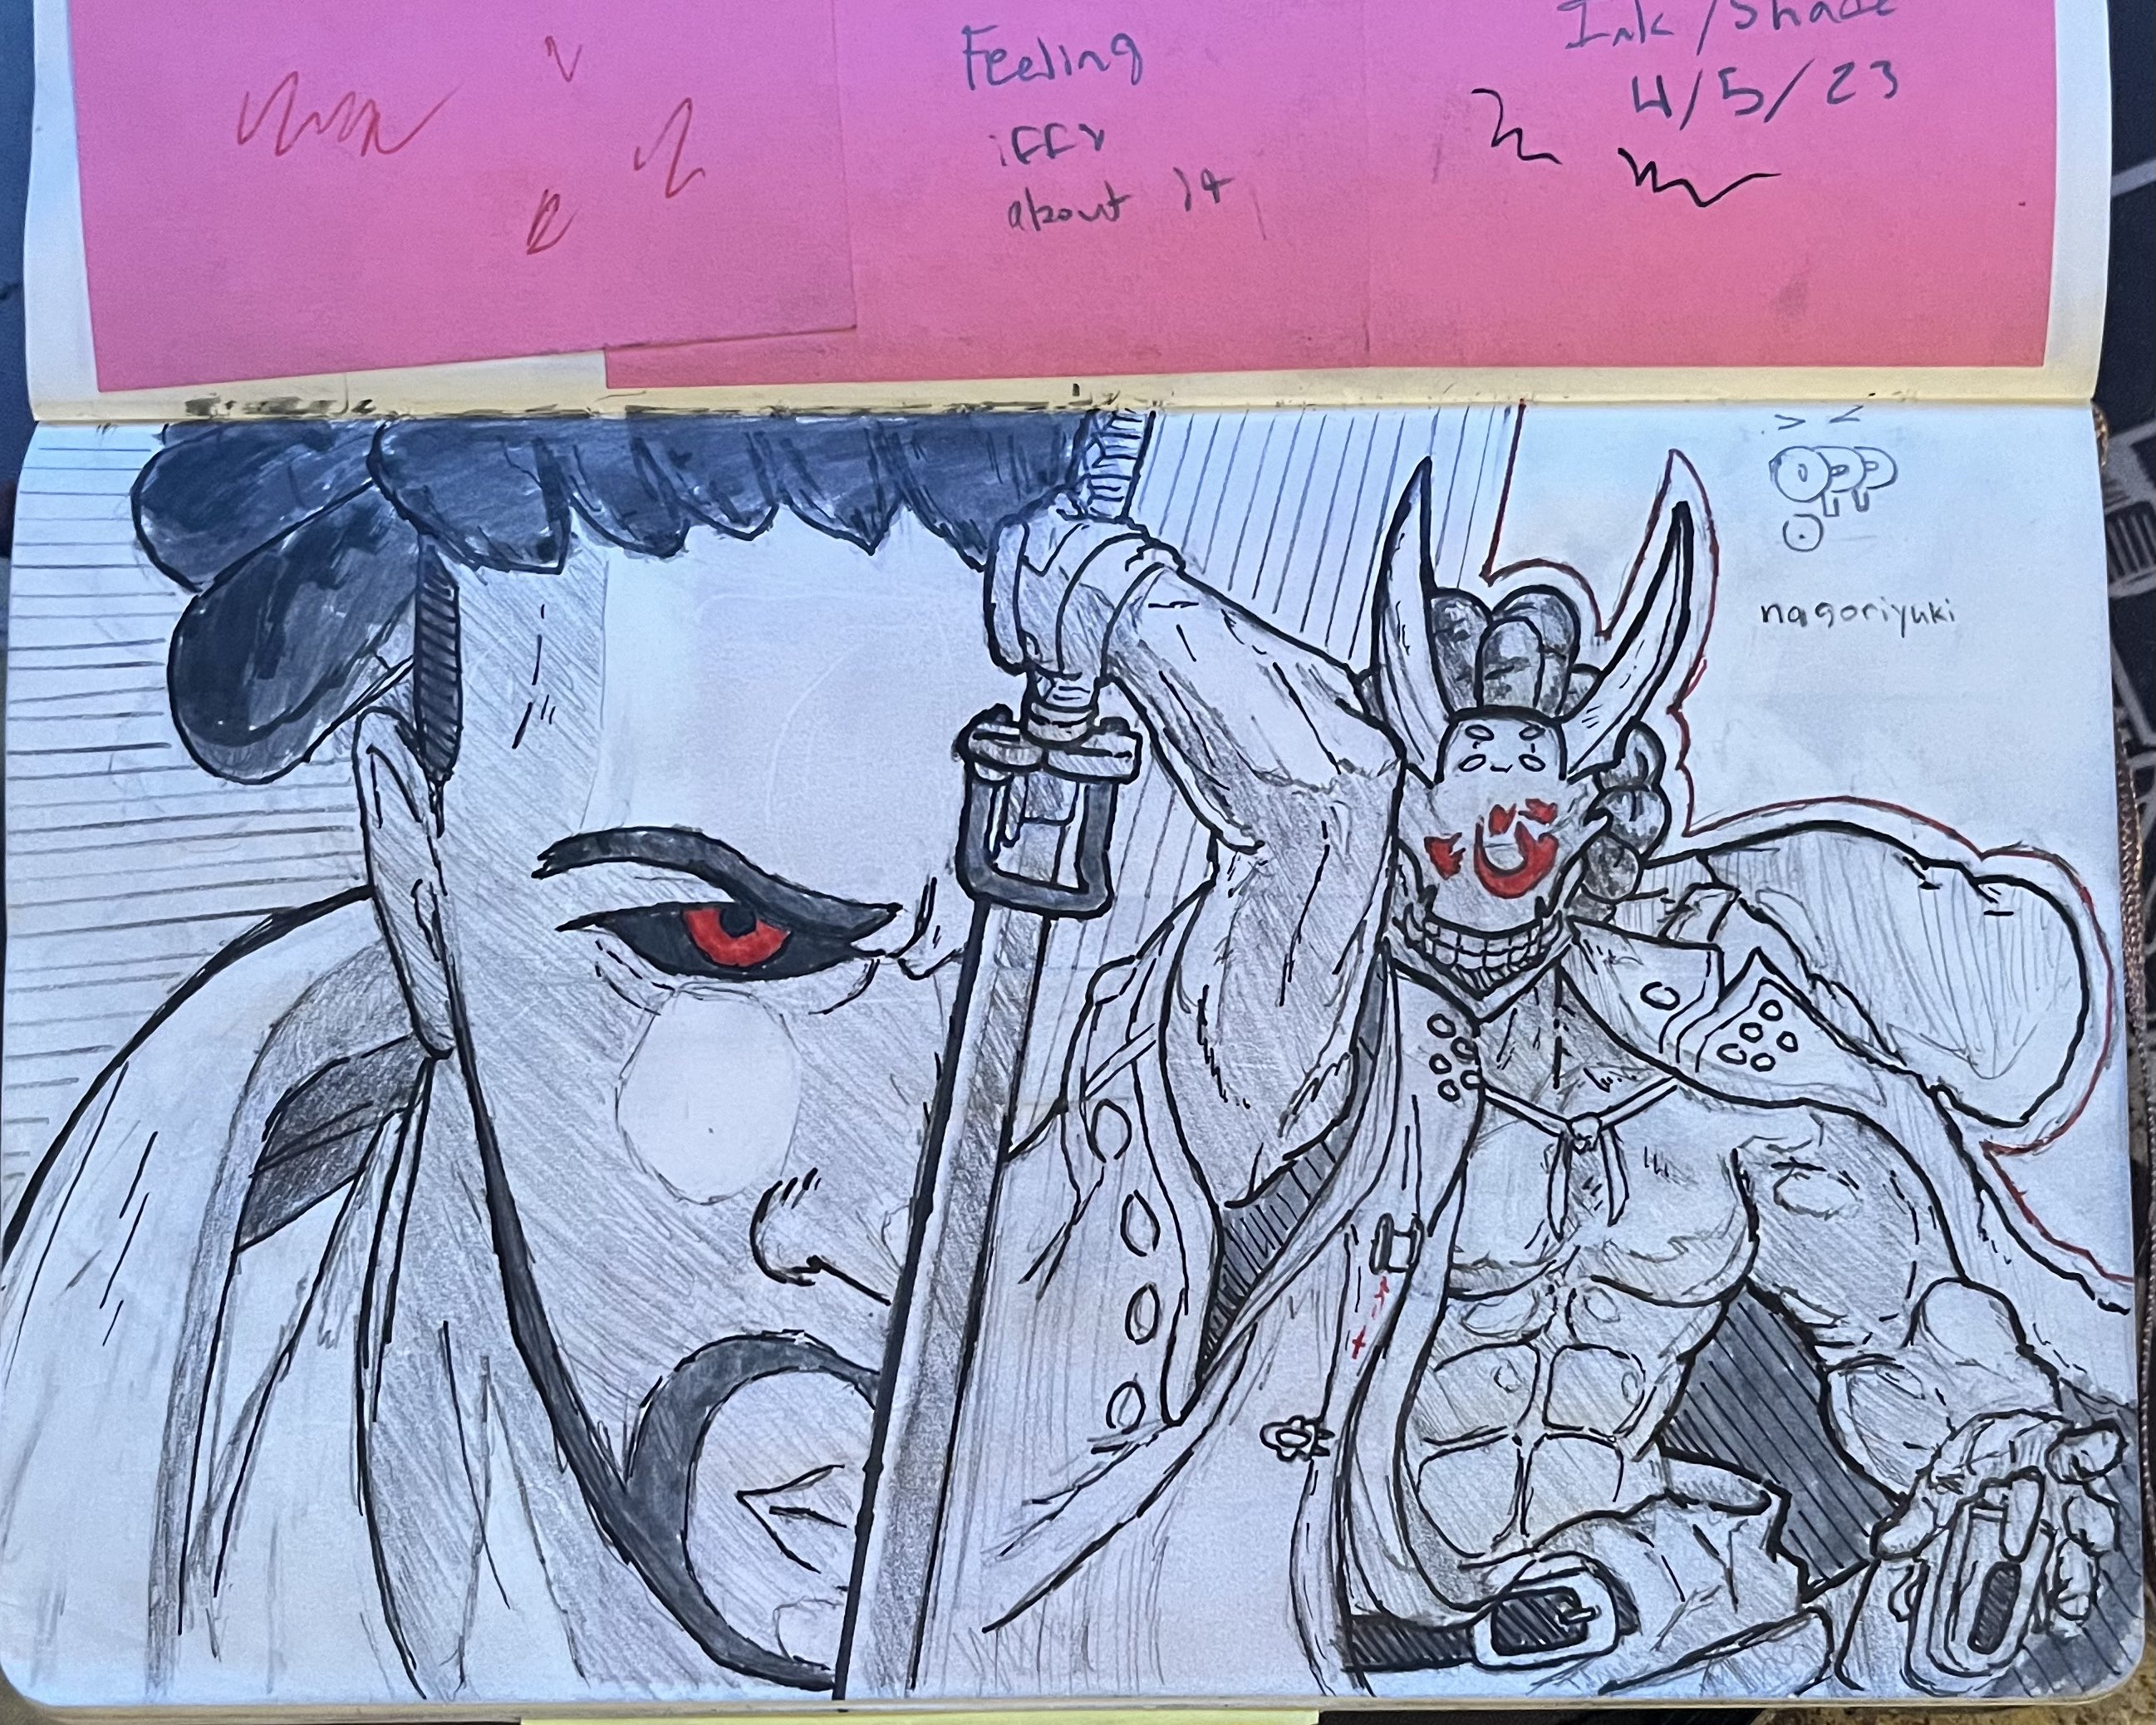 Feeling
iffy
about it
Ink/Shade
4/5/23
opp
nagoriyuki